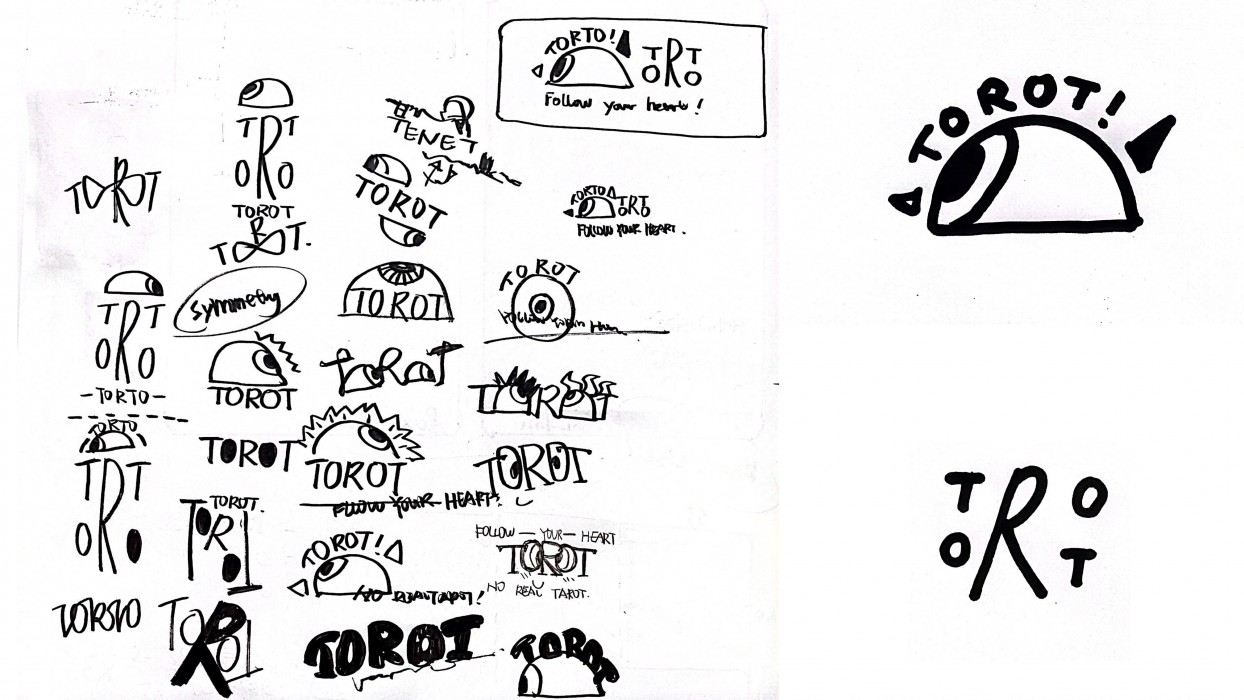 TORTO!
T T
R
O O
Follow your heart!
TOROT!
T T
R
O O
TENET
TOROT
TOROT
TOROT
TOROT.
TORTO
T T
R
O O
FOLLOW YOUR HEART.
Symmetry
TOROT
TOROT
T T
R
O O
-TORTO-
TOROT
TOROT
TOROT
TORTO
T T
R
O
TOROT
TOROT
TOROT
FOLLOW YOUR HEART!
TOROT.
T
O
R
TOROT!
FOLLOW — YOUR — HEART
TOROT
NO REAL TAROT.
TOROT
TOROT
T O
R
O T